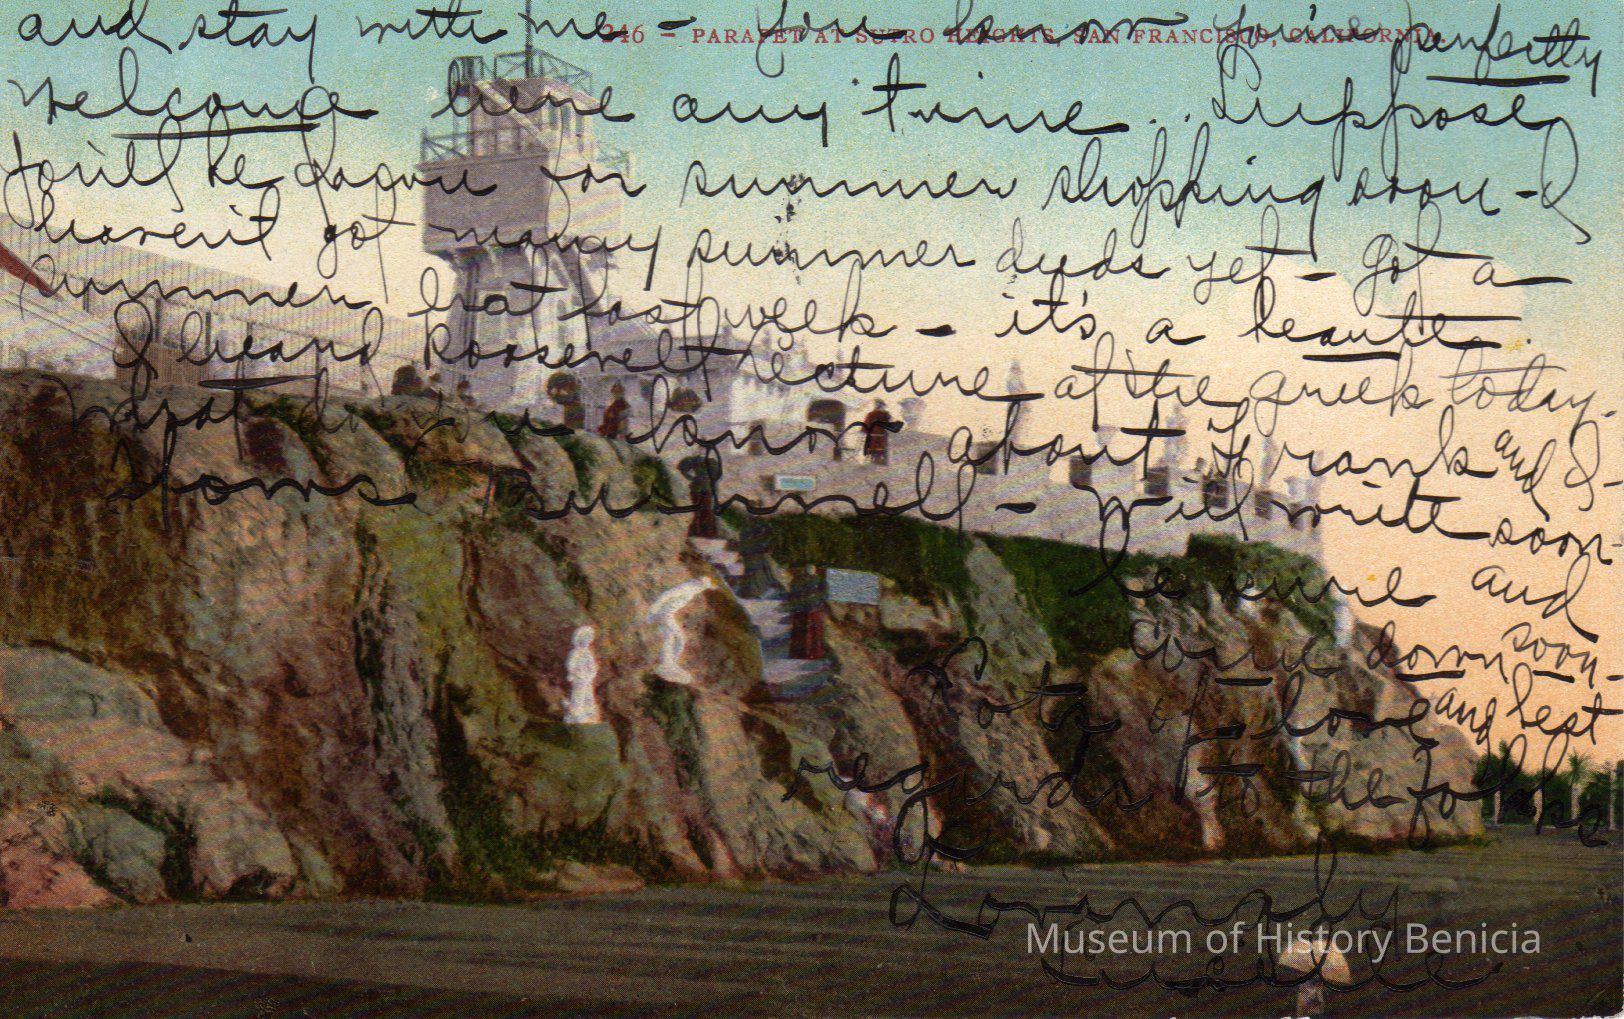 246 – PARAPET AT SUTRO HEIGHTS, SAN FRANCISCO, CALIFORNIA.
and stay with me – you know you're perfectly
welcome here any time... Suppose
you'll be down for summer shopping soon – I
haven't got many summer duds yet – got a
summer hat last week – it's a beaute.
I heard Roosevelt lecture at the greek today.
What do you know about Frank and I –
Bushnell – Will write soon –
be sure and
come down soon –
Lots of love and best
regards to the folks
Lovingly
Museum of History Benicia